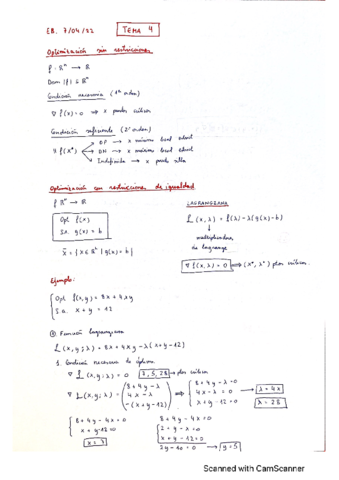 EB. 7/04/22 TEMA 4
Optimización sin restricciones
f: ℝⁿ → ℝ
Dom(f) ⊆ ℝⁿ
Condición necesaria (1ᵉʳ orden)
∇f(x)=0 ⇒ x punto crítico
Condición suficiente (2º orden)
H f(x*)
DP → x mínimo local
DN → x máximo local
Indefinida → x punto silla
Optimización con restricciones de igualdad
f ℝⁿ → ℝ
Opt f(x)
s.a. g(x) = b
x̄ = {x ∈ ℝⁿ | g(x) = b}
LAGRANGIANA
L (x, λ) = f(x) - λ(g(x)-b)
multiplicadores
de lagrange
∇ f(x, λ) = 0 ⇒ (x*, λ*) ptos críticos
Ejemplo:
Opt f(x,y) = 8x + 4xy
s.a. x + y = 12
① Función lagrangiana
L (x, y; λ) = 8x + 4xy - λ(x+y-12)
1. Condición necesaria de óptimo
∇ L (x, y; λ) = 0 7, 5, 28 → ptos críticos
∇ L (x, y; λ) = (8+4y-λ
4x-λ
-(x+y-12)) ⇒
8+4y-λ=0
4x-λ=0
x+y-12=0
λ = 4x
λ = 28
8+4y-4x=0
x+y-12=0
x = 7
8+4y-4x=0
2+y-x=0
x+y-12=0
2y-10=0 → y=5
Scanned with CamScanner